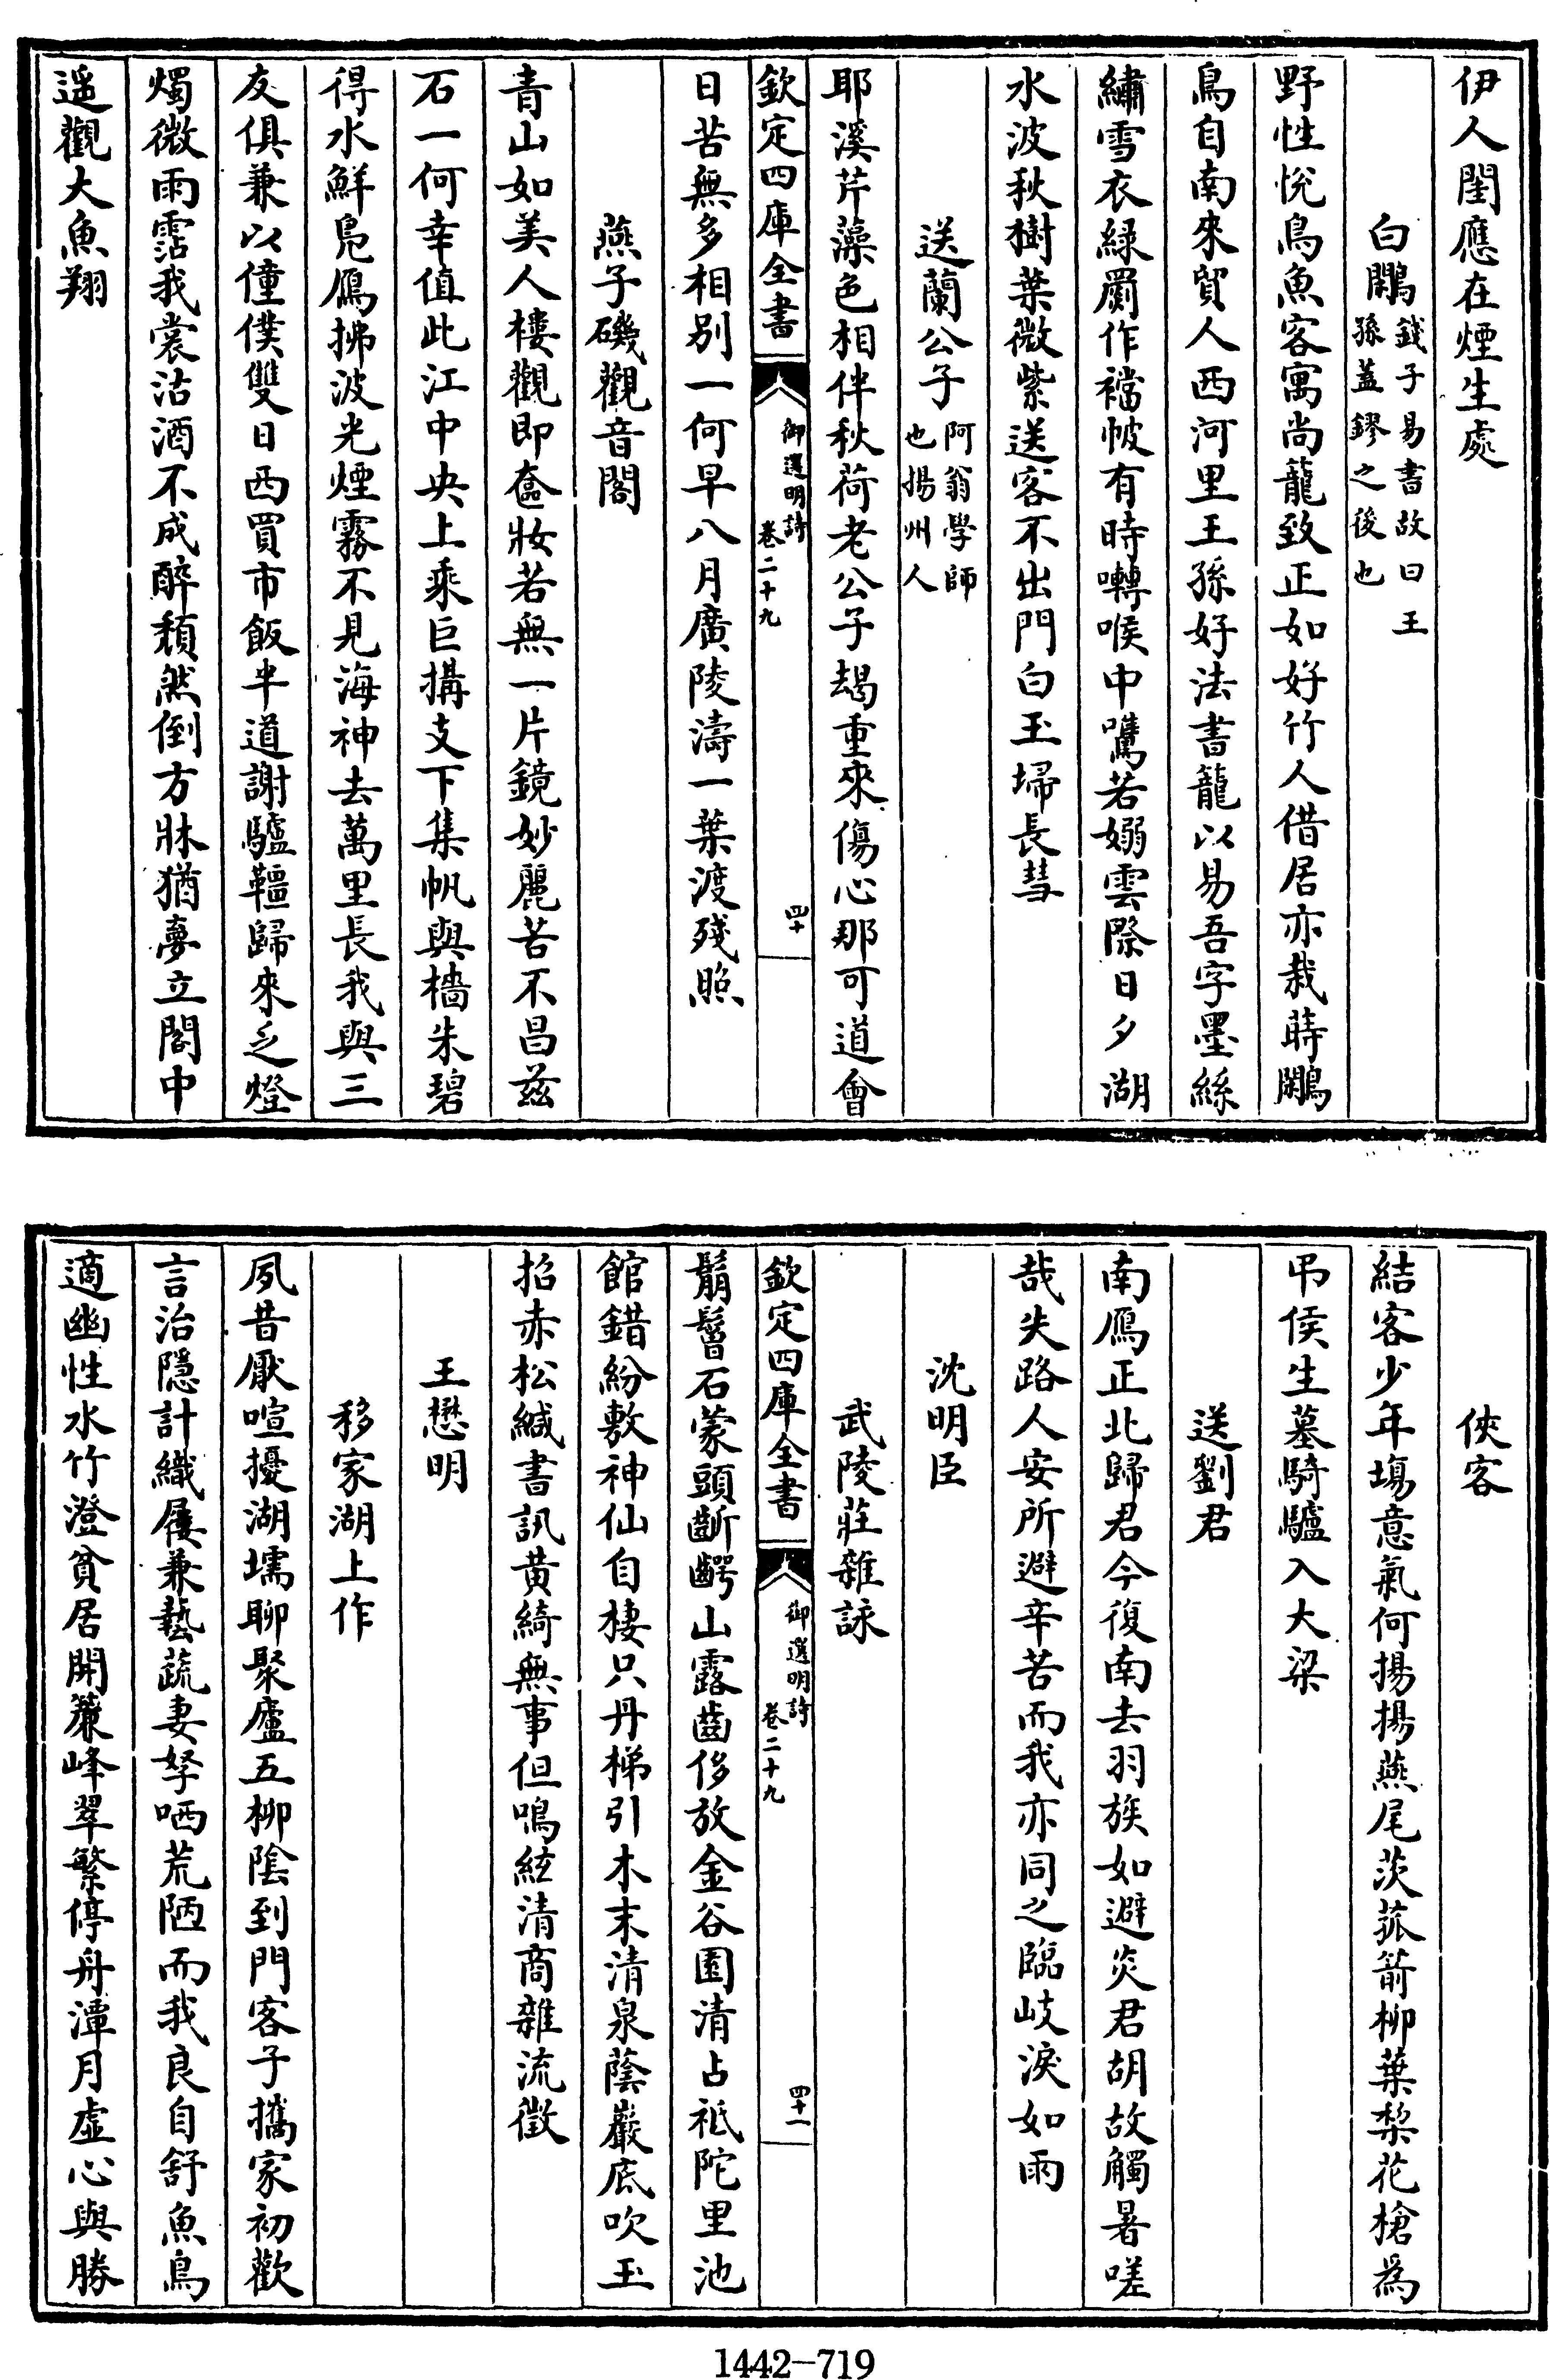 伊人閨應在煙生處
白鷳錢子易書故曰王
孫蓋鏐之後也
野性悅鳥魚客寓尚蘢致正如好竹人借居亦栽蒔鷳
鳥自南來貿人西河里王孫好法書籠以易吾字墨絲
繡雪衣綠罽作襠帔有時囀喉中嘴若嫋雲際日夕湖
水波秋樹葉微紫送客不出門白玉埽長彗
送蘭公子阿翁學師
也揚州人
耶溪芹藻色相伴秋荷老公子朅重來傷心那可道會
欽定四庫全書
御選明詩
卷二十九
四十
日苦無多相別一何早八月廣陵濤一葉渡殘照
燕子磯觀音閣
青山如美人樓觀即奩妝若無一片鏡妙麗苦不昌茲
石一何幸值此江中央上乘巨搆支下集帆與檣朱碧
得水鮮鳧鴈拂波光煙霧不見海神去萬里長我與三
友俱兼以僮僕雙日西買市飯半道謝驢韁歸來乏燈
燭微雨霑我裳沽酒不成醉頹然倒方牀猶夢立閣中
遥觀大魚翔
俠客
結客少年場意氣何揚揚燕尾茨菰箭柳葉棃花槍爲
弔侯生墓騎驢入大梁
送劉君
南鴈正北歸君今復南去羽族如避炎君胡故觸暑嗟
哉失路人安所避辛苦而我亦同之臨岐淚如雨
沈明臣
武陵莊雜詠
鬅鬙石蒙頭齗齶山露齒侈放金谷園清占祗陀里池
欽定四庫全書
御選明詩
卷二十九
四十一
館錯紛敷神仙自棲只丹梯引木末清泉蔭巖底吹玉
招赤松緘書訊黄綺無事但鳴絃清商雜流徵
王懋明
移家湖上作
夙昔厭喧擾湖壖聊聚廬五柳陰到門客子攜家初歡
言治隱計織屨兼藝蔬妻孥哂荒陋而我良自舒魚鳥
適幽性水竹澄貧居開簾峰翠繁停舟潭月虛心與勝
1442—719